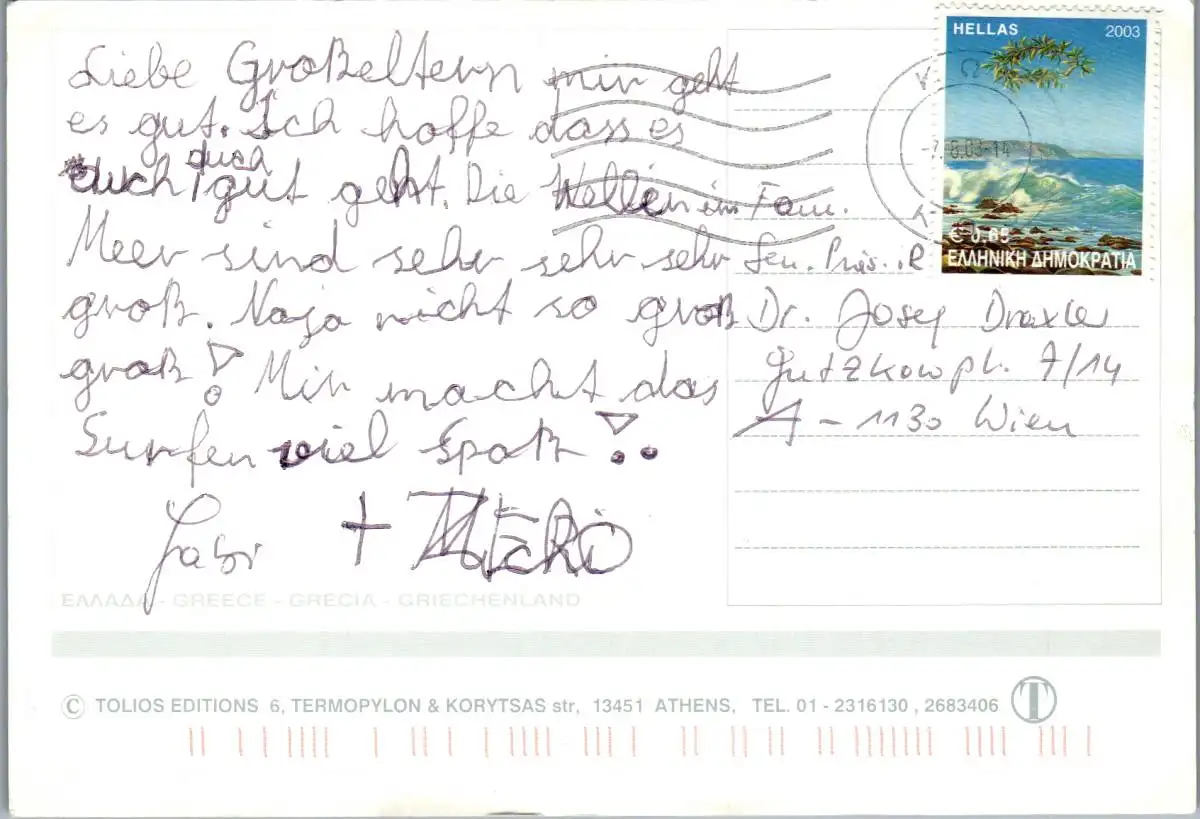 Liebe Großeltern mir geht
es gut. Ich hoffe dass es
euch auch gut geht. Die Wellen im
Meer sind sehr sehr sehr
groß. Naja nicht so groß
groß! Mir macht das
Surfen viel Spaß!..
Gabi + MECRO
ΕΛΛΑΔΑ - GREECE - GRECIA - GRIECHENLAND
HELLAS 2003
€ 0.65
ΕΛΛΗΝΙΚΗ ΔΗΜΟΚΡΑΤΙΑ
Fam.
Sen. Präs. i.R
Dr. Josef Draxler
Gutzkowpl. 7/14
A - 1130 Wien
© TOLIOS EDITIONS 6, TERMOPYLON & KORYTSAS str, 13451 ATHENS, TEL. 01 - 2316130 , 2683406 T